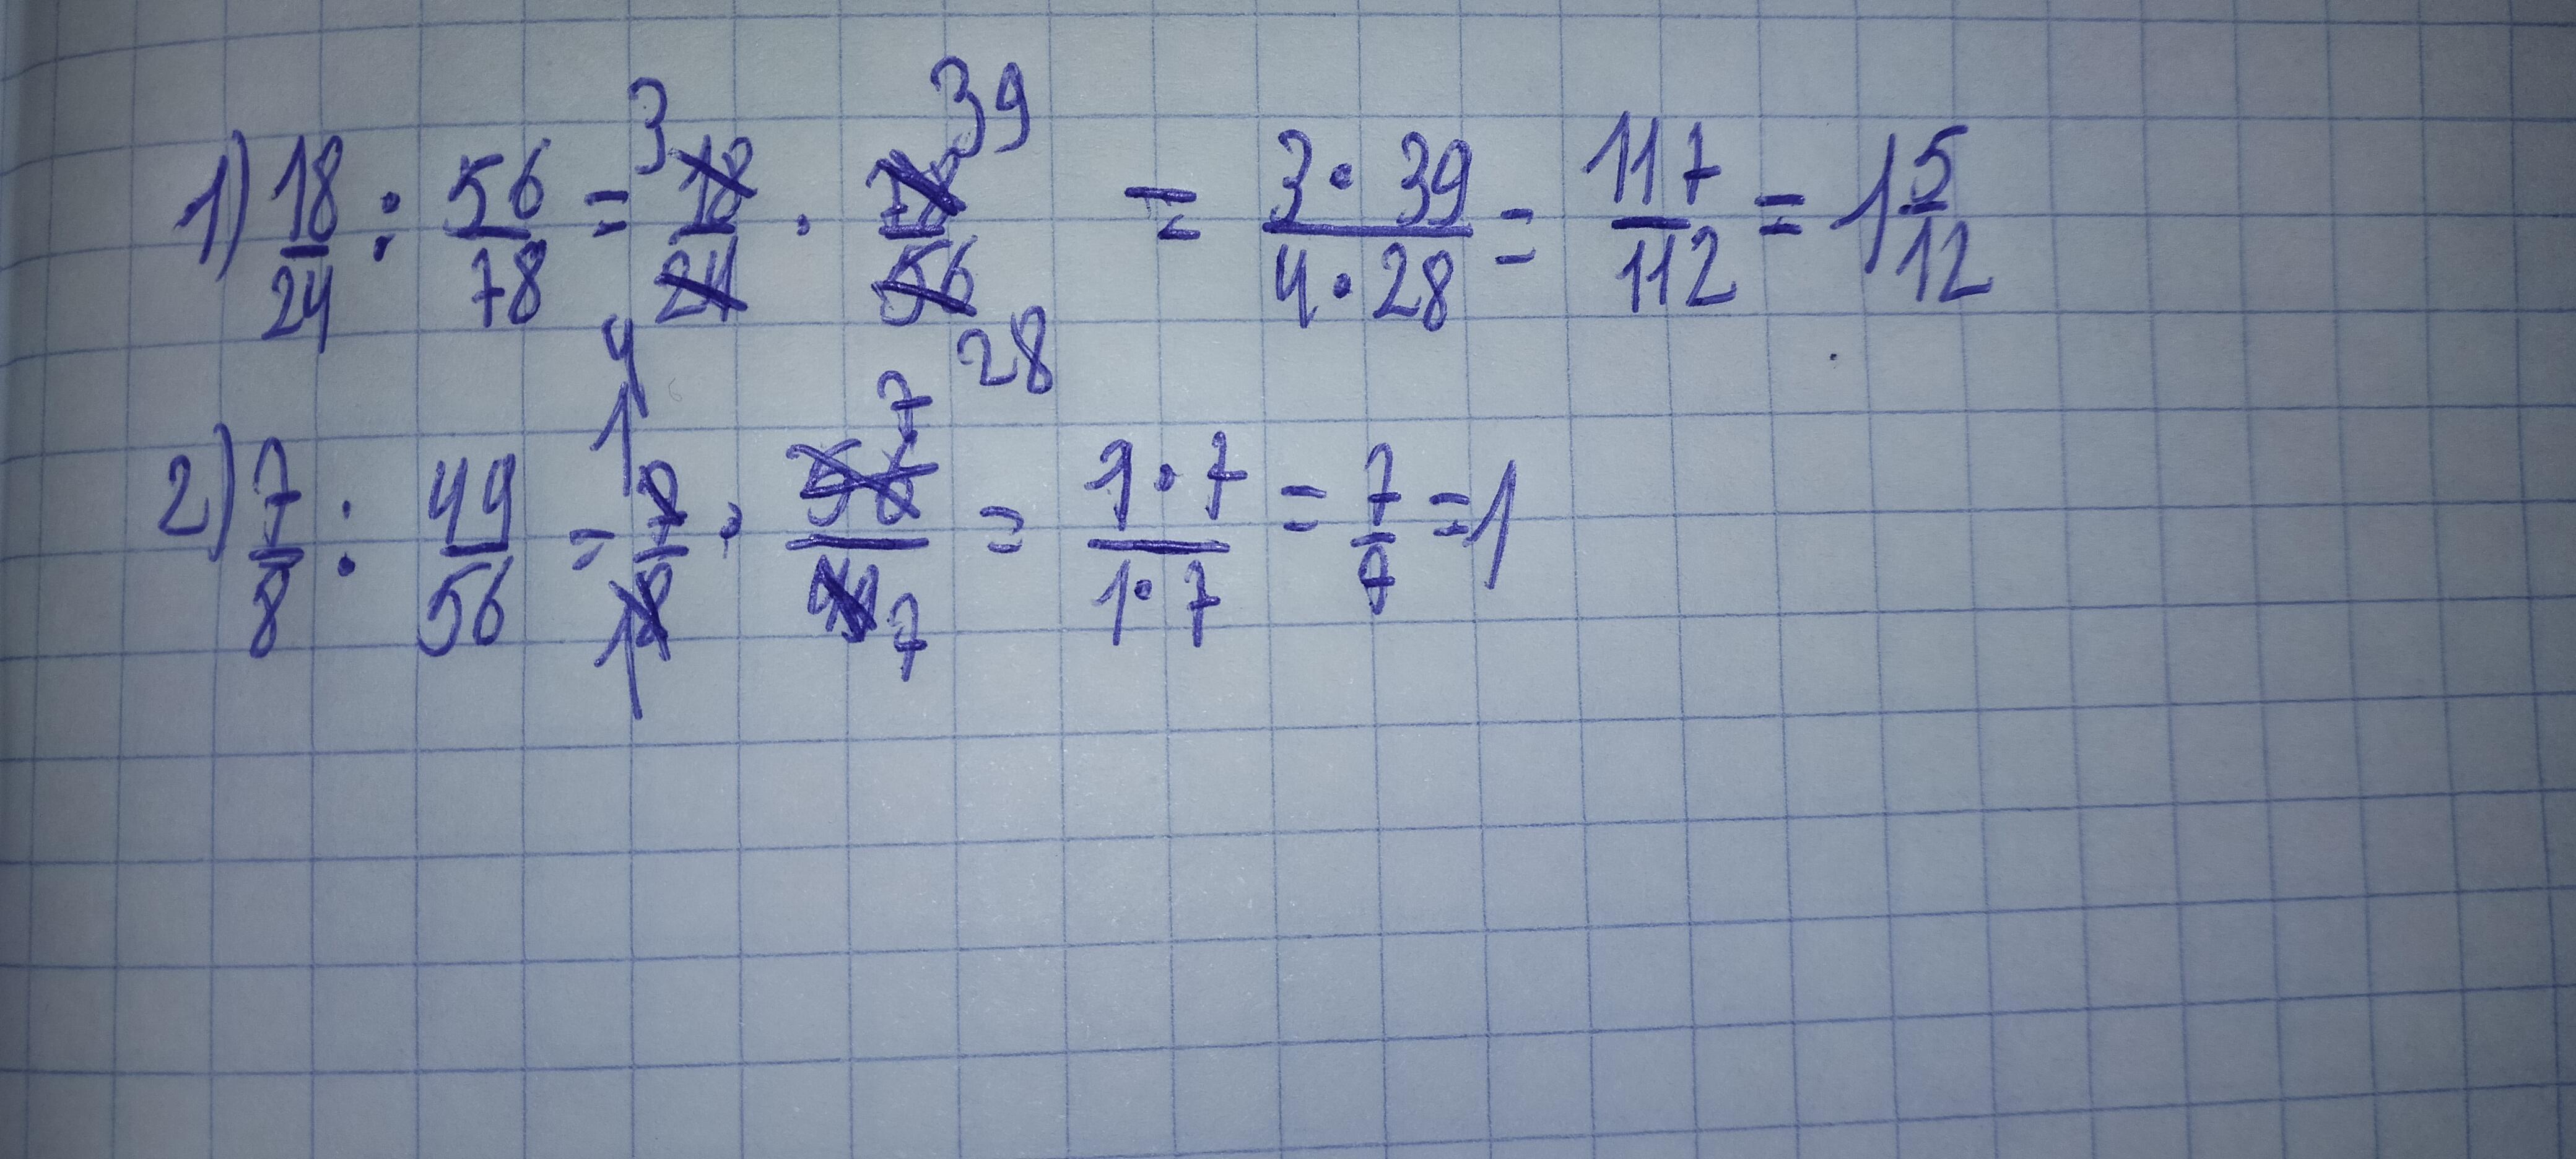 1) 18/24 : 56/78 = 3 18/24 4 · 39 78/56 28 = 3·39/4·28 = 117/112 = 1 5/12
2) 7/8 : 49/56 = 1 7/8 1 · 7 56/49 7 = 1·7/1·7 = 7/7 = 1